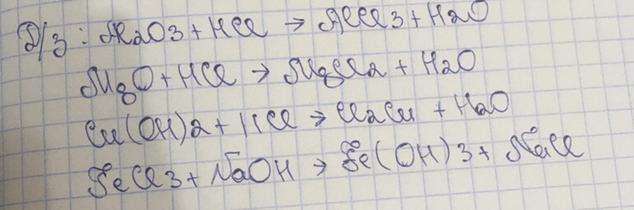 Д/З: Al2O3 + HCl → AlCl3 + H2O
MgO + HCl → MgCl2 + H2O
Cu(OH)2 + HCl → Cl2Cu + H2O
FeCl3 + NaOH → Fe(OH)3 + NaCl